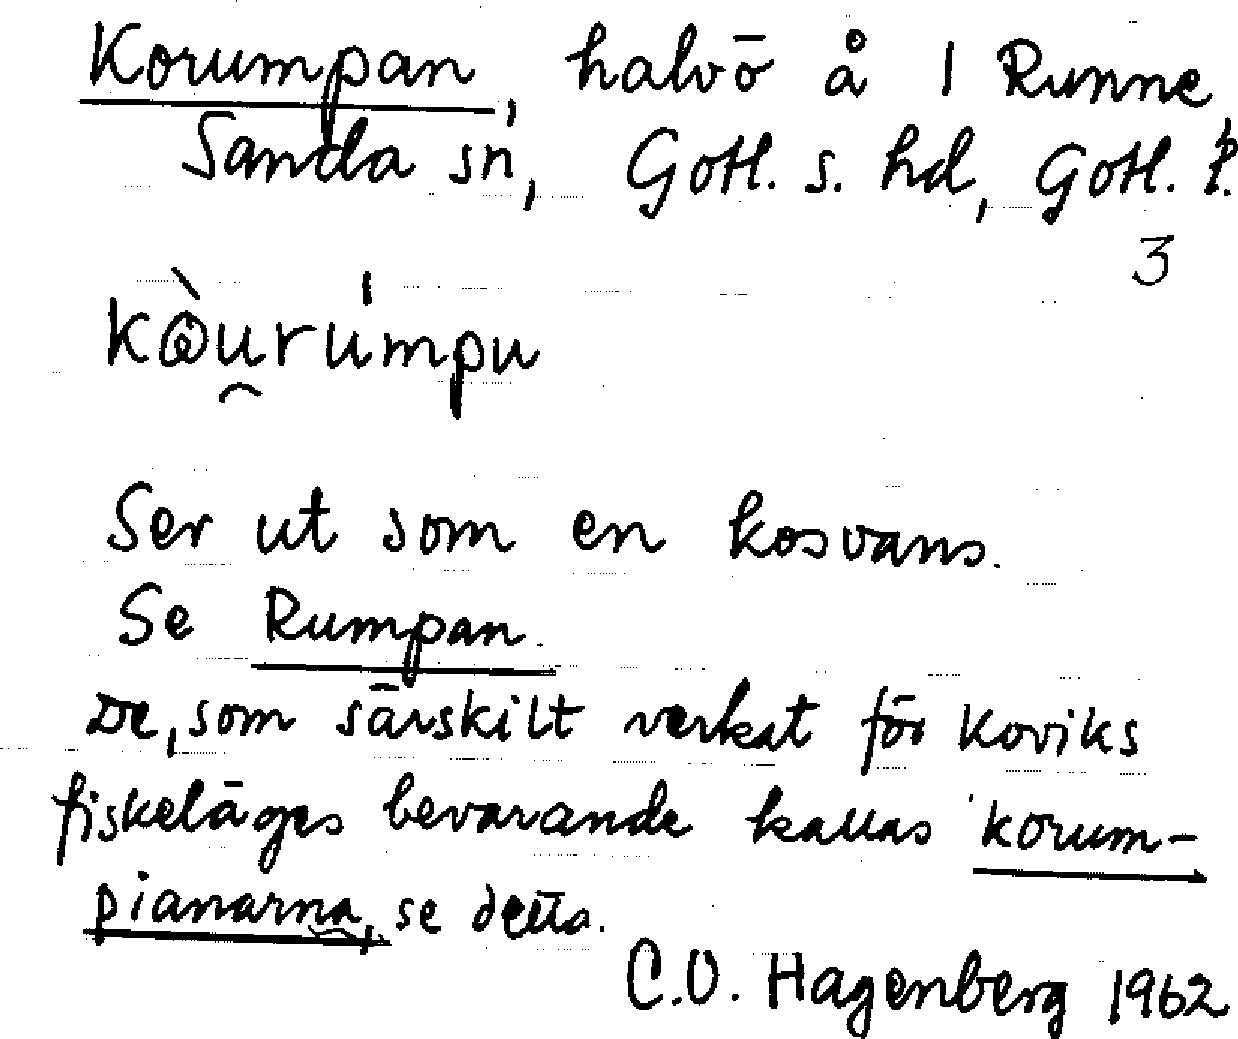 Korumpan, halvö å 1 Runne,
Sanda sn, Gotl. s. hd, Gotl. l.
3
Ser ut som en kosvans.
Se Rumpan.
De, som särskilt verkat för Koviks
fiskeläges bevarande kallas korum-
pianarna, se detta.
C.O. Hagenberg 1962